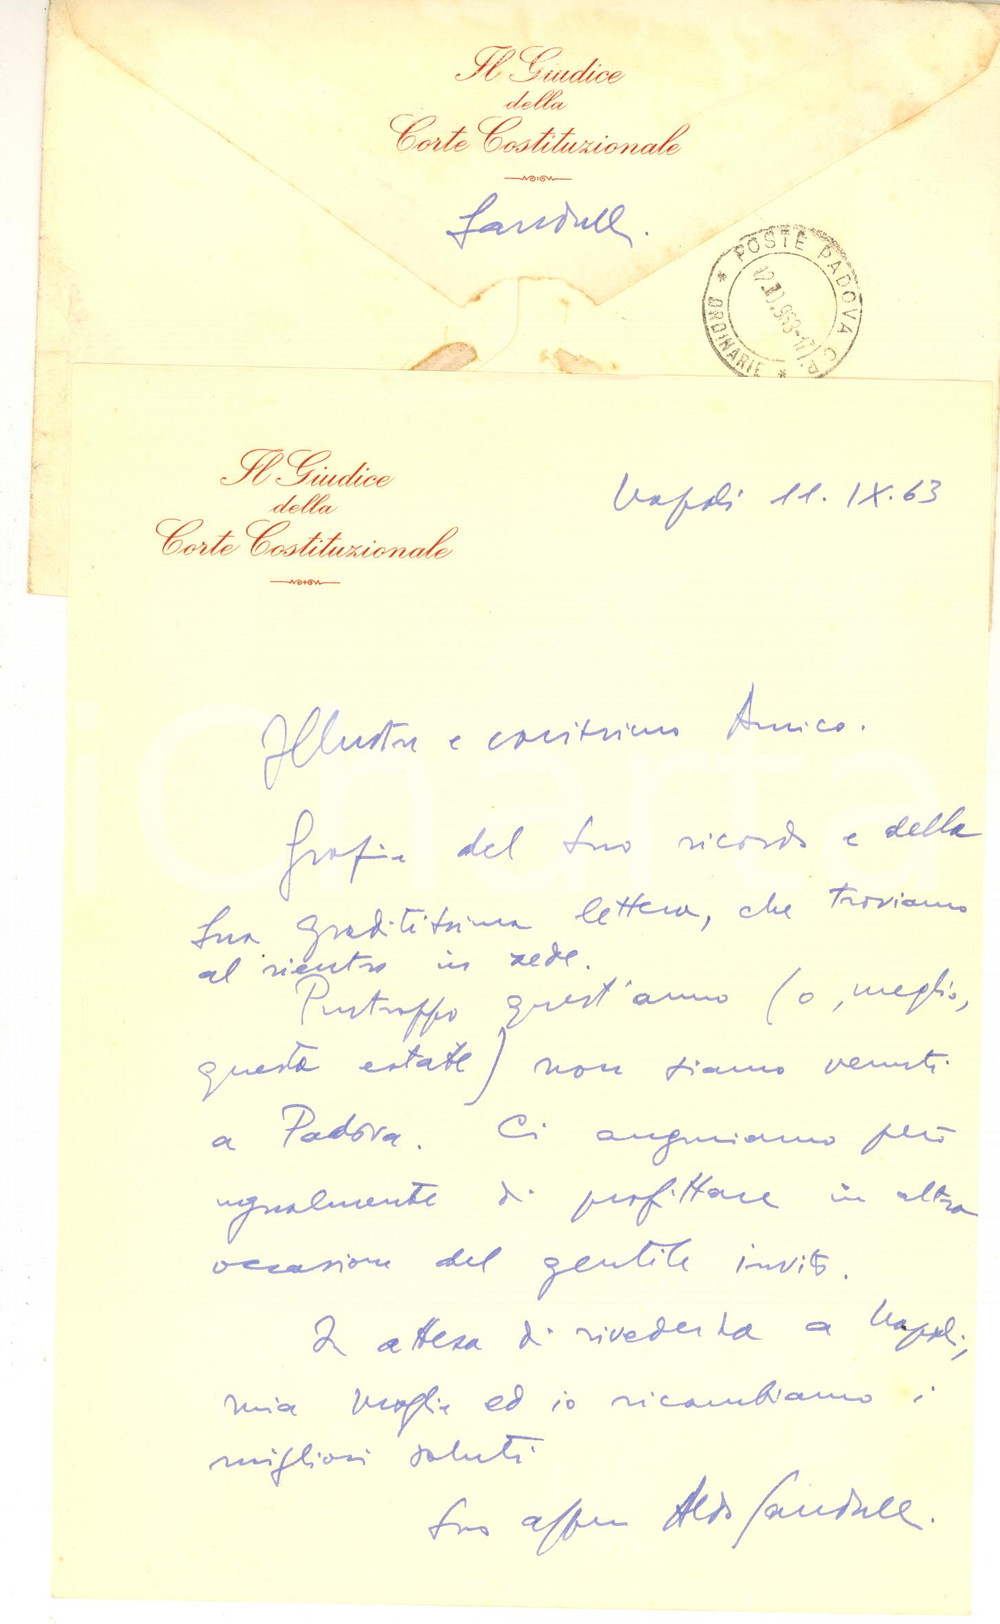 Il Giudice
della
Corte Costituzionale
Sandulli.
* POSTE PADOVA C.P. * ORDINARIE
Il Giudice
della
Corte Costituzionale
Napoli 11.IX.63
Illustre e carissimo Amico.
Grazie del Suo ricordo e della
Sua graditissima lettera, che troviamo
al rientro in sede.
Purtroppo quest'anno (o, meglio,
questa estate) non siamo venuti
a Padova. Ci auguriamo però
ugualmente di profittare in altra
occasione del gentile invito.
In attesa di rivederLa a Napoli,
mia moglie ed io ricambiamo i
migliori saluti
Suo aff.mo Aldo Sandulli.
iCharta